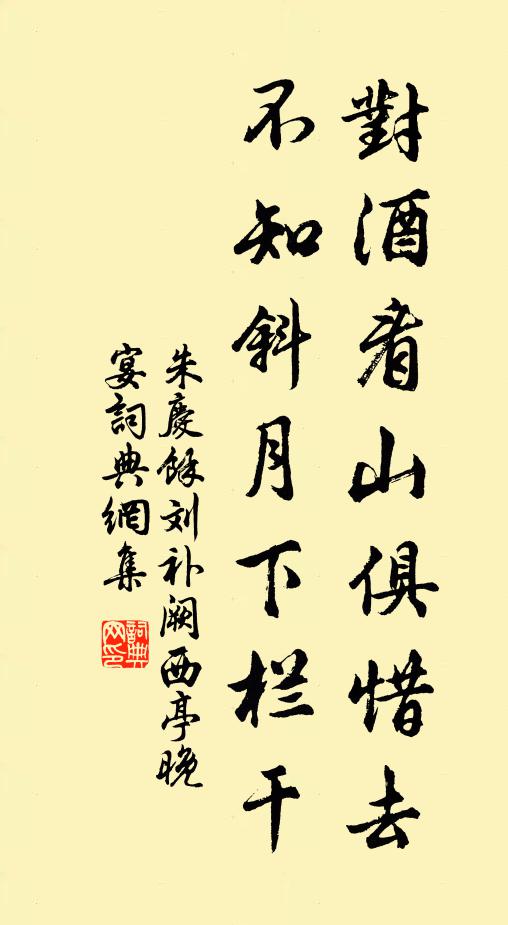 對酒看山俱惜去
不知斜月下栏干
朱慶餘刘补阙西亭晚
宴詞典網集
詞典
网印